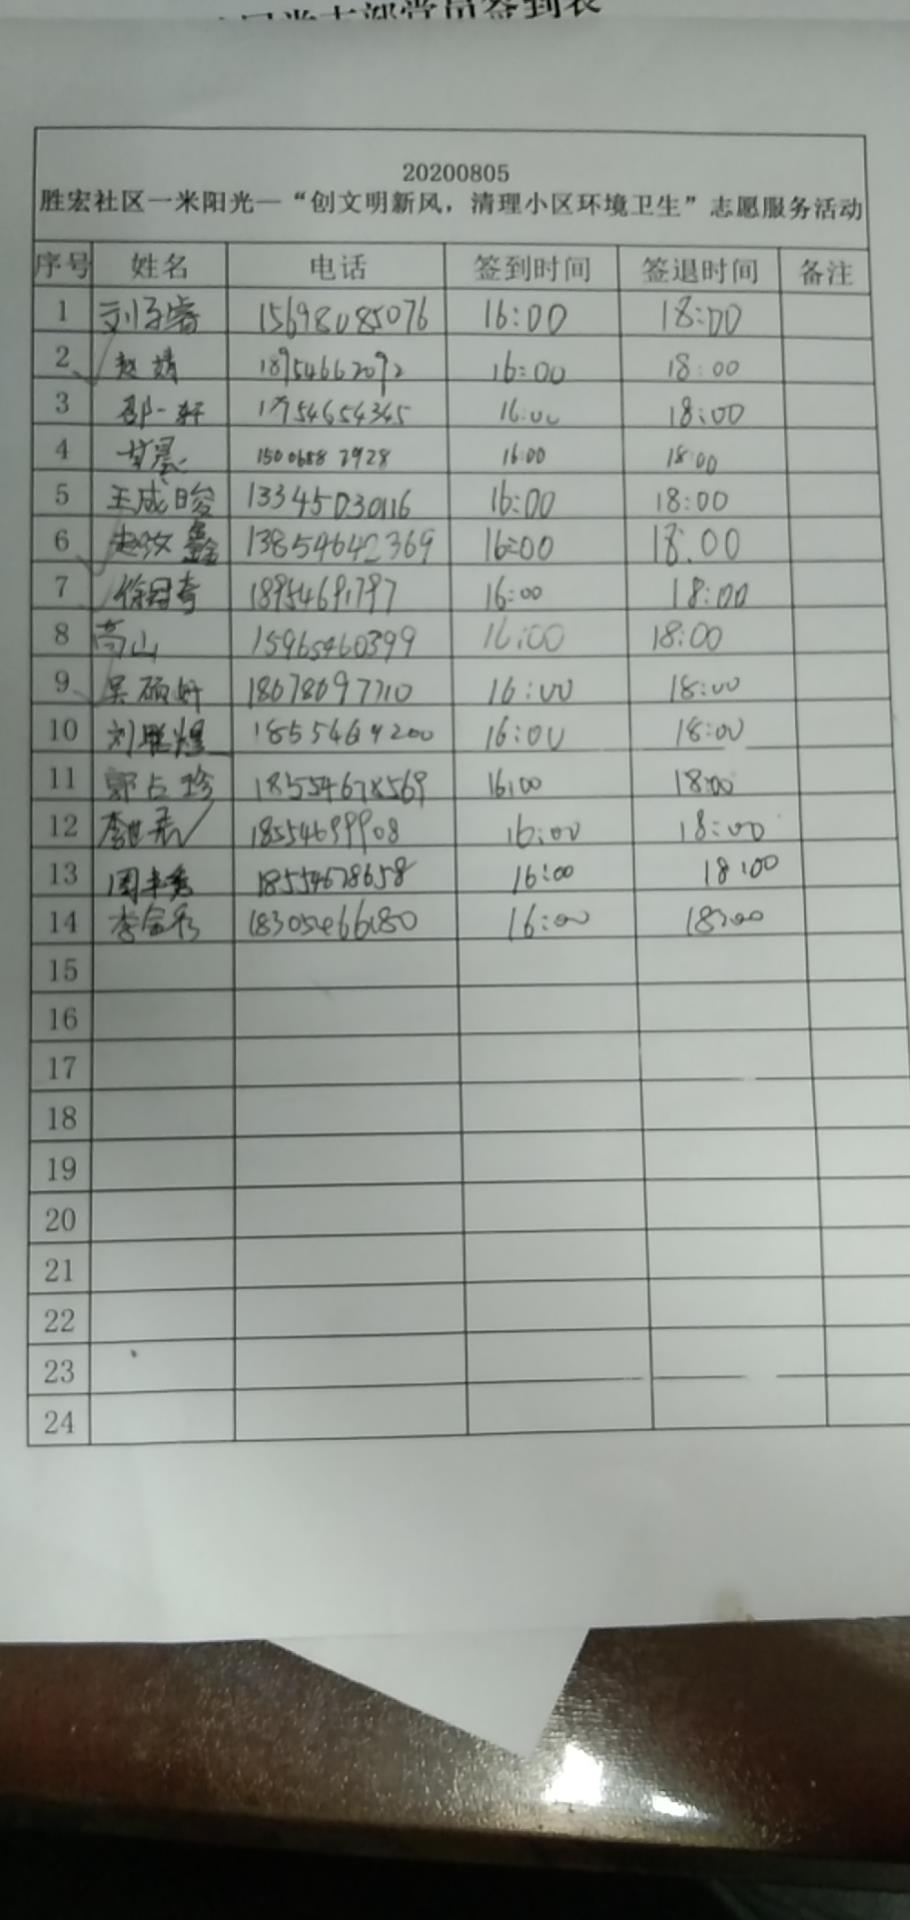 党支部党员签到表
20200805
胜宏社区一米阳光—“创文明新风，清理小区环境卫生”志愿服务活动
序号 姓名 电话 签到时间 签退时间 备注
1 刘子睿 15698085076 16:00 18:00
2 赵婧 18954662092 16:00 18:00
3 邵一轩 17954654345 16:00 18:00
4 16:00 18:00
5 王成晙 13345030116 16:00 18:00
6 赵汝鑫 13854642369 16:00 18.00
7 徐冠奇 16:00 18:00
8 高山 15965460399 16:00 18:00
9 吴硕妍 18678697710 16:00 18:00
10 16:00 18:00
11 郭占珍 18554678569 16:00 18:00
12 李世 18554699908 16:00 18:00
13 周丰秀 18554678658 16:00 18:00
14 李金彩 18305466180 16:00 18:00
15
16
17
18
19
20
21
22
23
24